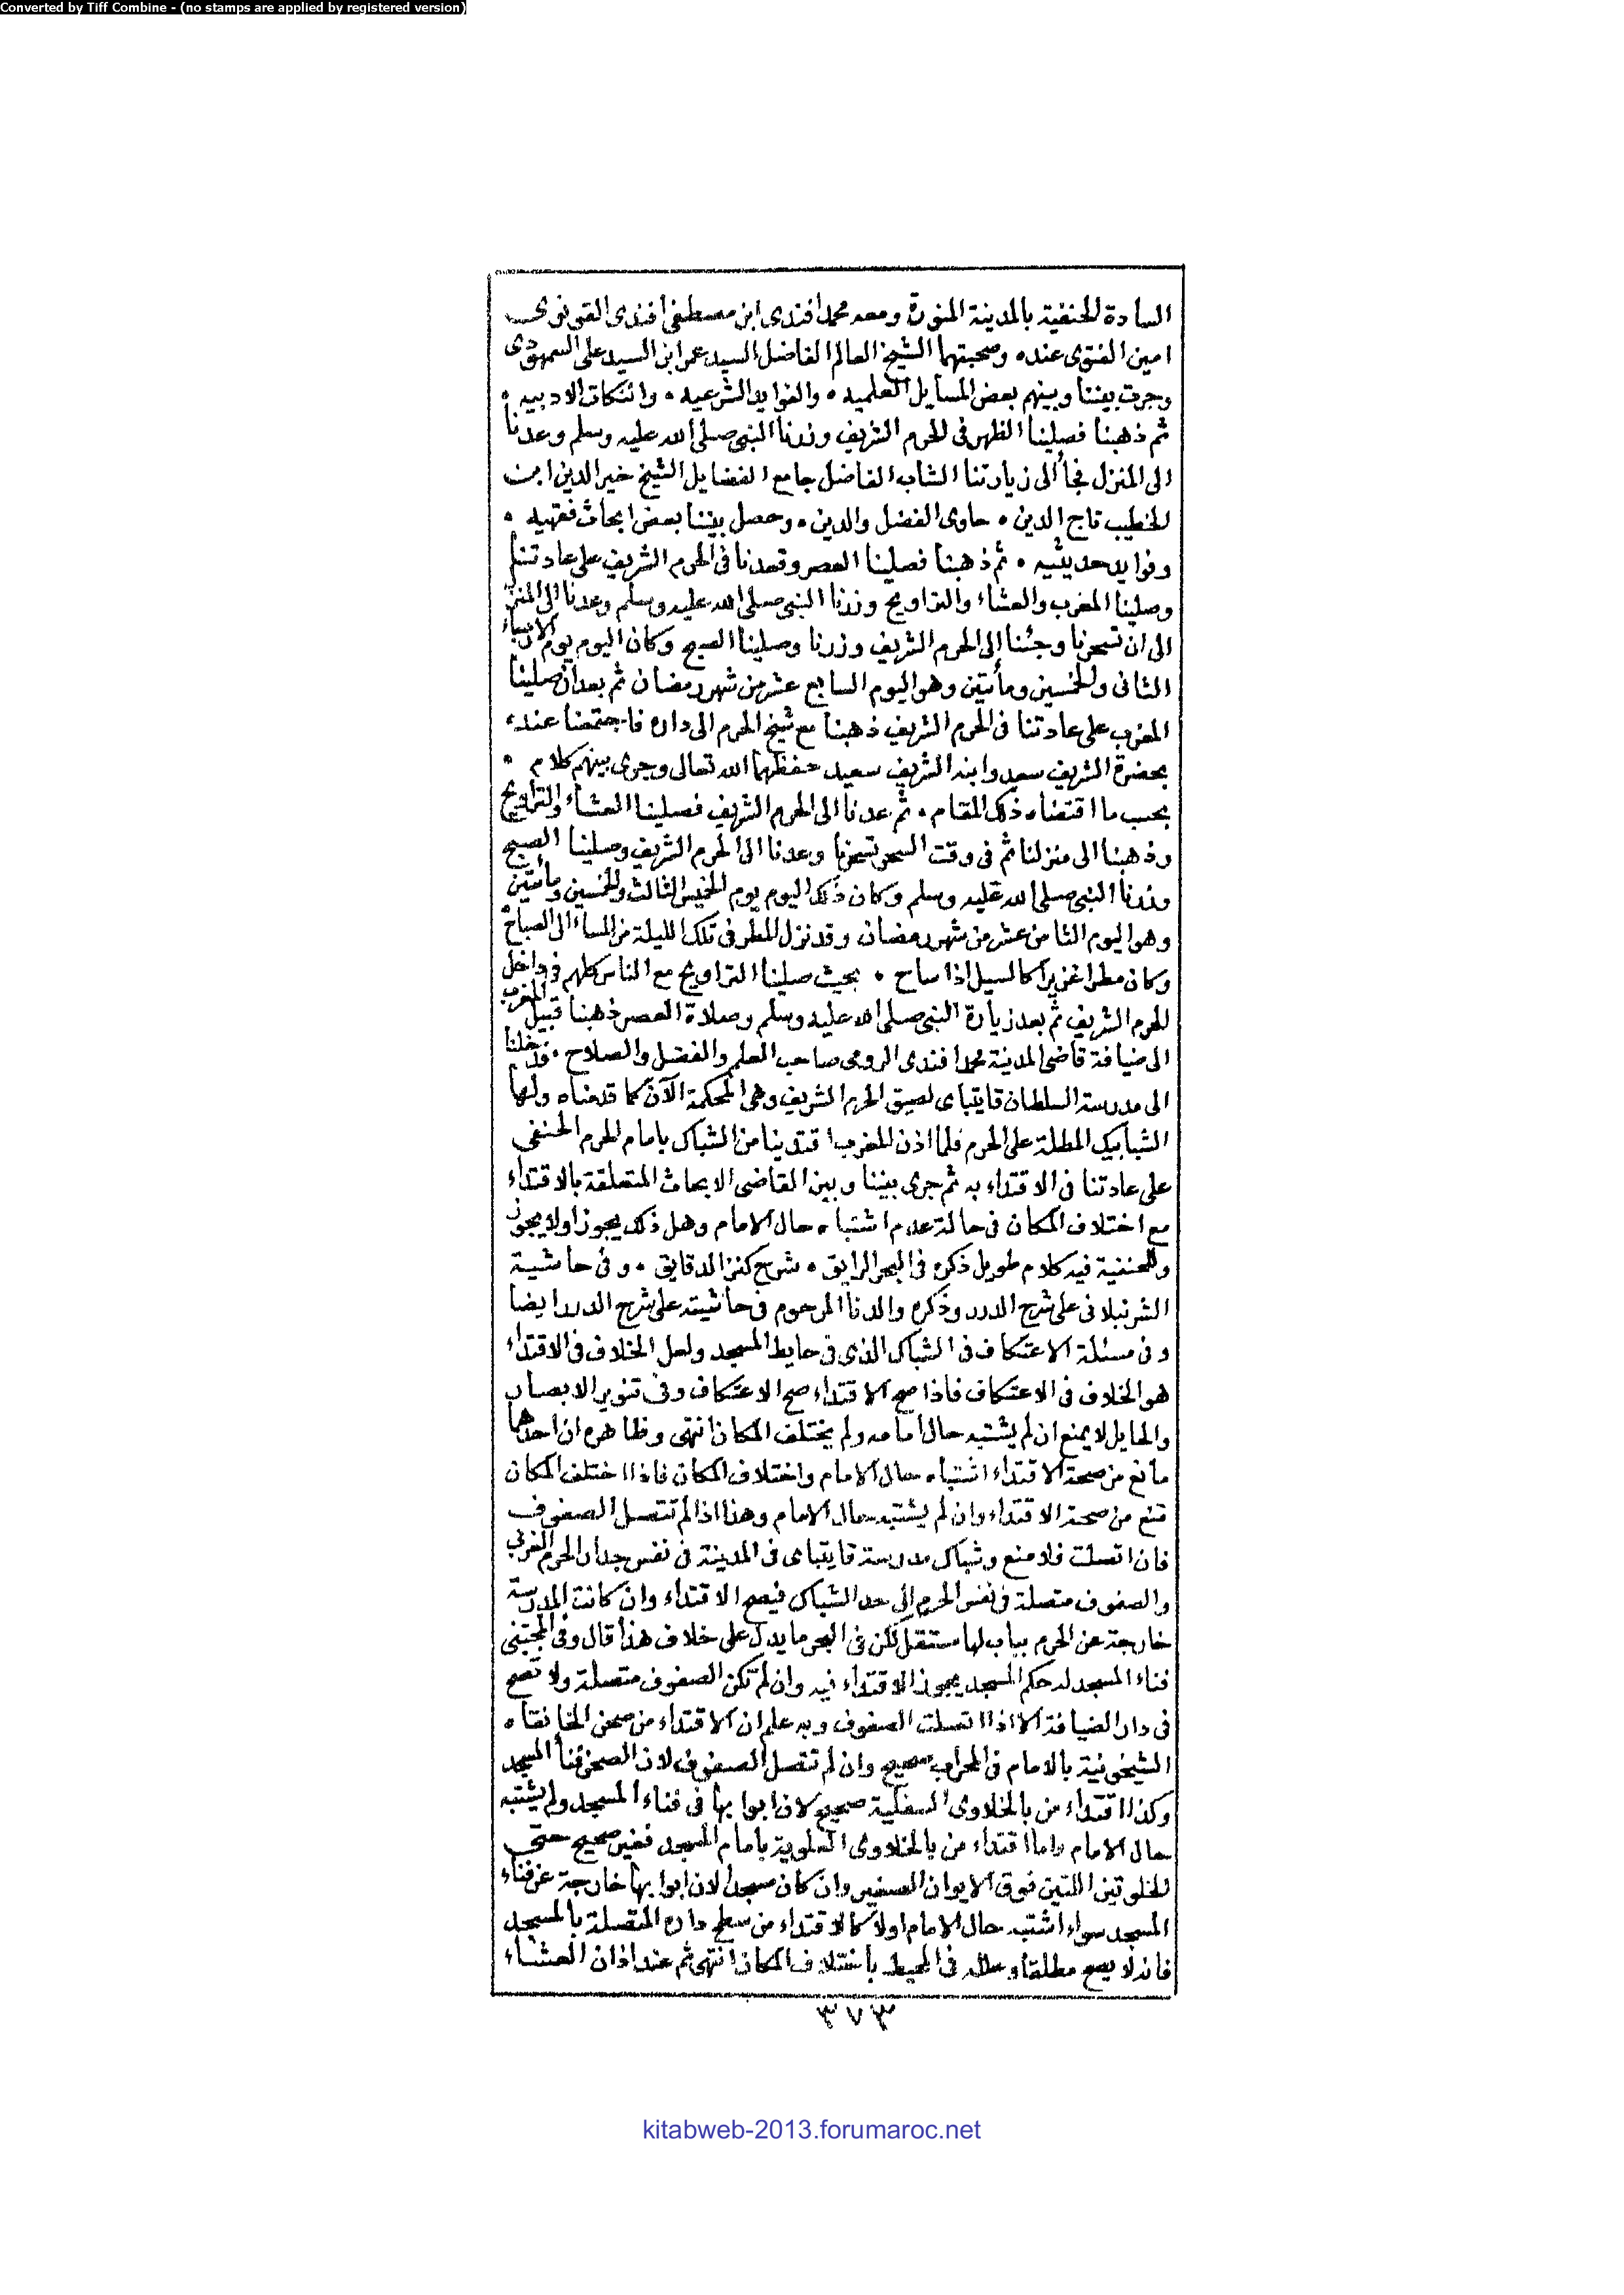 Converted by Tiff Combine - (no stamps are applied by registered version)
السادة الحنفية بالمدينة المنورة ومعه محمد افندى ابن مصطفى افندى القونوى
امين الفتوى عنده وصحبتهما الشيخ العالم الفاضل السيد عمر ابن السيد على السمهودى
وجرت بيننا وبينهم بعض المسايل العلميه • والفوايد الشرعيه • والنكات الادبيه •
ثم ذهبنا فصلينا الظهر فى الحرم الشريف وزرنا النبى صلى الله عليه وسلم وعدنا
الى المنزل فجأ الى زيارتنا الشاب الفاضل جامع الفضايل الشيخ خير الدين ابن
الخطيب تاج الدين • حاوى الفضل والدين • وحصل بيننا بعض ابحاث فقهيه •
وفوايد حديثيه • ثم ذهبنا فصلينا العصر وقعدنا فى الحرم الشريف على عادتنا
وصلينا المغرب والعشاء والتراويح وزرنا النبى صلى الله عليه وسلم وعدنا الى المنزل
الى ان تسحرنا وجئنا الى الحرم الشريف وزرنا وصلينا الصبح وكان اليوم يوم الاربعاء
الثانى والخمسين ومأتين وهو اليوم السابع عشر من شهر رمضان ثم بعد ان صلينا
المغرب على عادتنا فى الحرم الشريف ذهبنا مع شيخ الحرم الى داره فاجتمعنا عنده
بحضرة الشريف سعد وابنه الشريف سعيد حفظهما الله تعالى وجرى بينهم كلام •
بحسب ما اقتضاه ذلك المقام • ثم عدنا الى الحرم الشريف فصلينا العشاء والتراويح
وذهبنا الى منزلنا ثم فى وقت السحر تسحرنا وعدنا الى الحرم الشريف وصلينا الصبح
وزرنا النبى صلى الله عليه وسلم وكان ذلك اليوم يوم الخميس الثالث والخمسين ومأتين
وهو اليوم الثامن عشر من شهر رمضان وقد نزل المطر فى تلك الليلة من المساء الى الصباح
وكان مطرا غزيرا كالسيل اذا ساح • بحيث صلينا التراويح مع الناس كلهم فى داخل
الحرم الشريف ثم بعد زيارة النبى صلى الله عليه وسلم وصلاة العصر ذهبنا قبيل المغرب
الى ضيافة قاضى المدينة محمد افندى الرومى صاحب العلم والفضل والصلاح • فدخلنا
الى مدرسة السلطان قايتباى لصيق الحرم الشريف وهى المحكمة الآن كما قدمناه ولها
الشبابيك المطلة على الحرم فلما اذن المغرب اقتدينا من الشباك بامام الحرم الحنفى
على عادتنا فى الاقتداء به ثم جرى بيننا وبين القاضى الابحاث المتعلقة بالاقتداء
مع اختلاف المكان فى حالة عدم اشتباه حال الامام وهل ذلك يجوز اولا يجوز
وللحنفية فيه كلام طويل ذكره فى البحر الرايق • شرح كنز الدقايق • وفى حاشية
الشرنبلالى على شرح الدرر وذكره والدنا المرحوم فى حاشيته على شرح الدرر ايضا
وفى مسئلة الاعتكاف فى الشباك الذى فى حايط المسجد ولعل الخلاف فى الاقتداء
هو الخلاف فى الاعتكاف فاذا صح الاقتداء صح الاعتكاف وفى تنوير الابصار
والحايل لا يمنع ان لم يشتبه حال امامه ولم يختلف المكان انتهى وظاهره ان احدهما
مانع من صحة الاقتداء اشتباه حال الامام واختلاف المكان فاذا اختلف المكان
منع من صحة الاقتداء وان لم يشتبه حال الامام وهذا اذا لم تتصل الصفوف
فان اتصلت فلا منع وشباك مدرسة قايتباى فى المدينة فى نفس جدار الحرم الغربى
والصفوف متصلة فى نفس الحرم الى حد الشباك فيصح الاقتداء وان كانت المدرسة
خارجة عن الحرم بباب لها مستقل لكن فى البحر ما يدل على خلاف هذا قال وفى المجتبى
فناء المسجد له حكم المسجد يجوز الاقتداء فيه وان لم تكن الصفوف متصلة ولا تصح
فى دار الضيافة الا اذا اتصلت الصفوف وبه علم ان الاقتداء من صحن الخانقاه
الشيخونية بالامام فى المحراب صحيح وان لم تتصل الصفوف لان الصحن فنأ المسجد
وكذا اقتداء من بالخلاوى السفلية صحيح لان ابوابها فى فناء المسجد ولم يشتبه
حال الامام واما اقتداء من بالخلاوى العلوية بامام المسجد فغير صحيح حتى
الخلوتين اللتين فوق الايوان الصغير وان كان مسجدا لان ابوابها خارجة عن فناء
المسجد سواء اشتبه حال الامام اولا كالاقتداء من سطح داره المتصلة بالمسجد
فانه لا يصح مطلقا وعلله فى المحيط باختلاف المكان انتهى ثم عند اذان العشاء
٣٧٣
kitabweb-2013.forumaroc.net